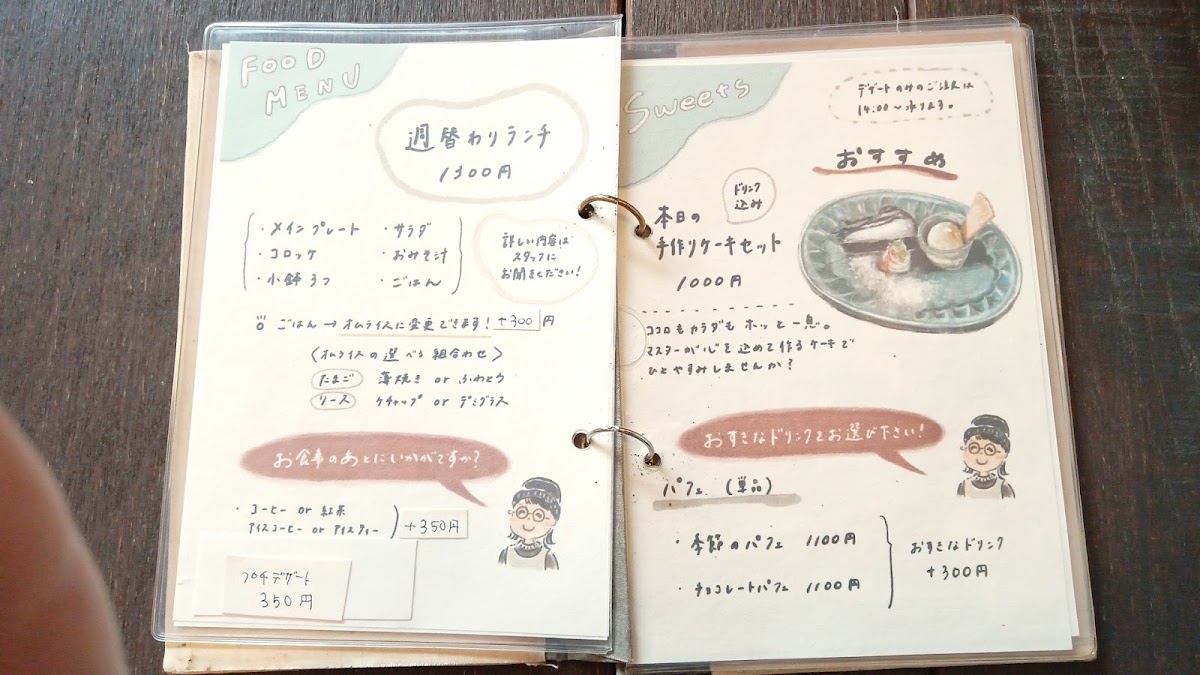 FOOD
MENU
週替わりランチ
1300円
・メインプレート
・コロッケ
・小鉢3つ
・サラダ
・おみそ汁
・ごはん
詳しい内容は
スタッフに
お聞きください!
ごはん→オムライスに変更できます! +300円
〈オムライスの選べる組合わせ〉
たまご 薄焼き or ふわとろ
ソース ケチャップ or デミグラス
お食事のあとにいかがですか?
・コーヒー or 紅茶
アイスコーヒー or アイスティー
+350円
プチデザート
350円
Sweets
デザートのみのご注文は
14:00〜承ります。
おすすめ
ドリンク
込み
本日の
手作りケーキセット
1000円
ココロもカラダもホッと一息。
マスターが心を込めて作るケーキで
ひとやすみしませんか?
おすきなドリンクをお選び下さい!
パフェ(単品)
・季節のパフェ 1100円
・チョコレートパフェ 1100円
おすきなドリンク
+300円